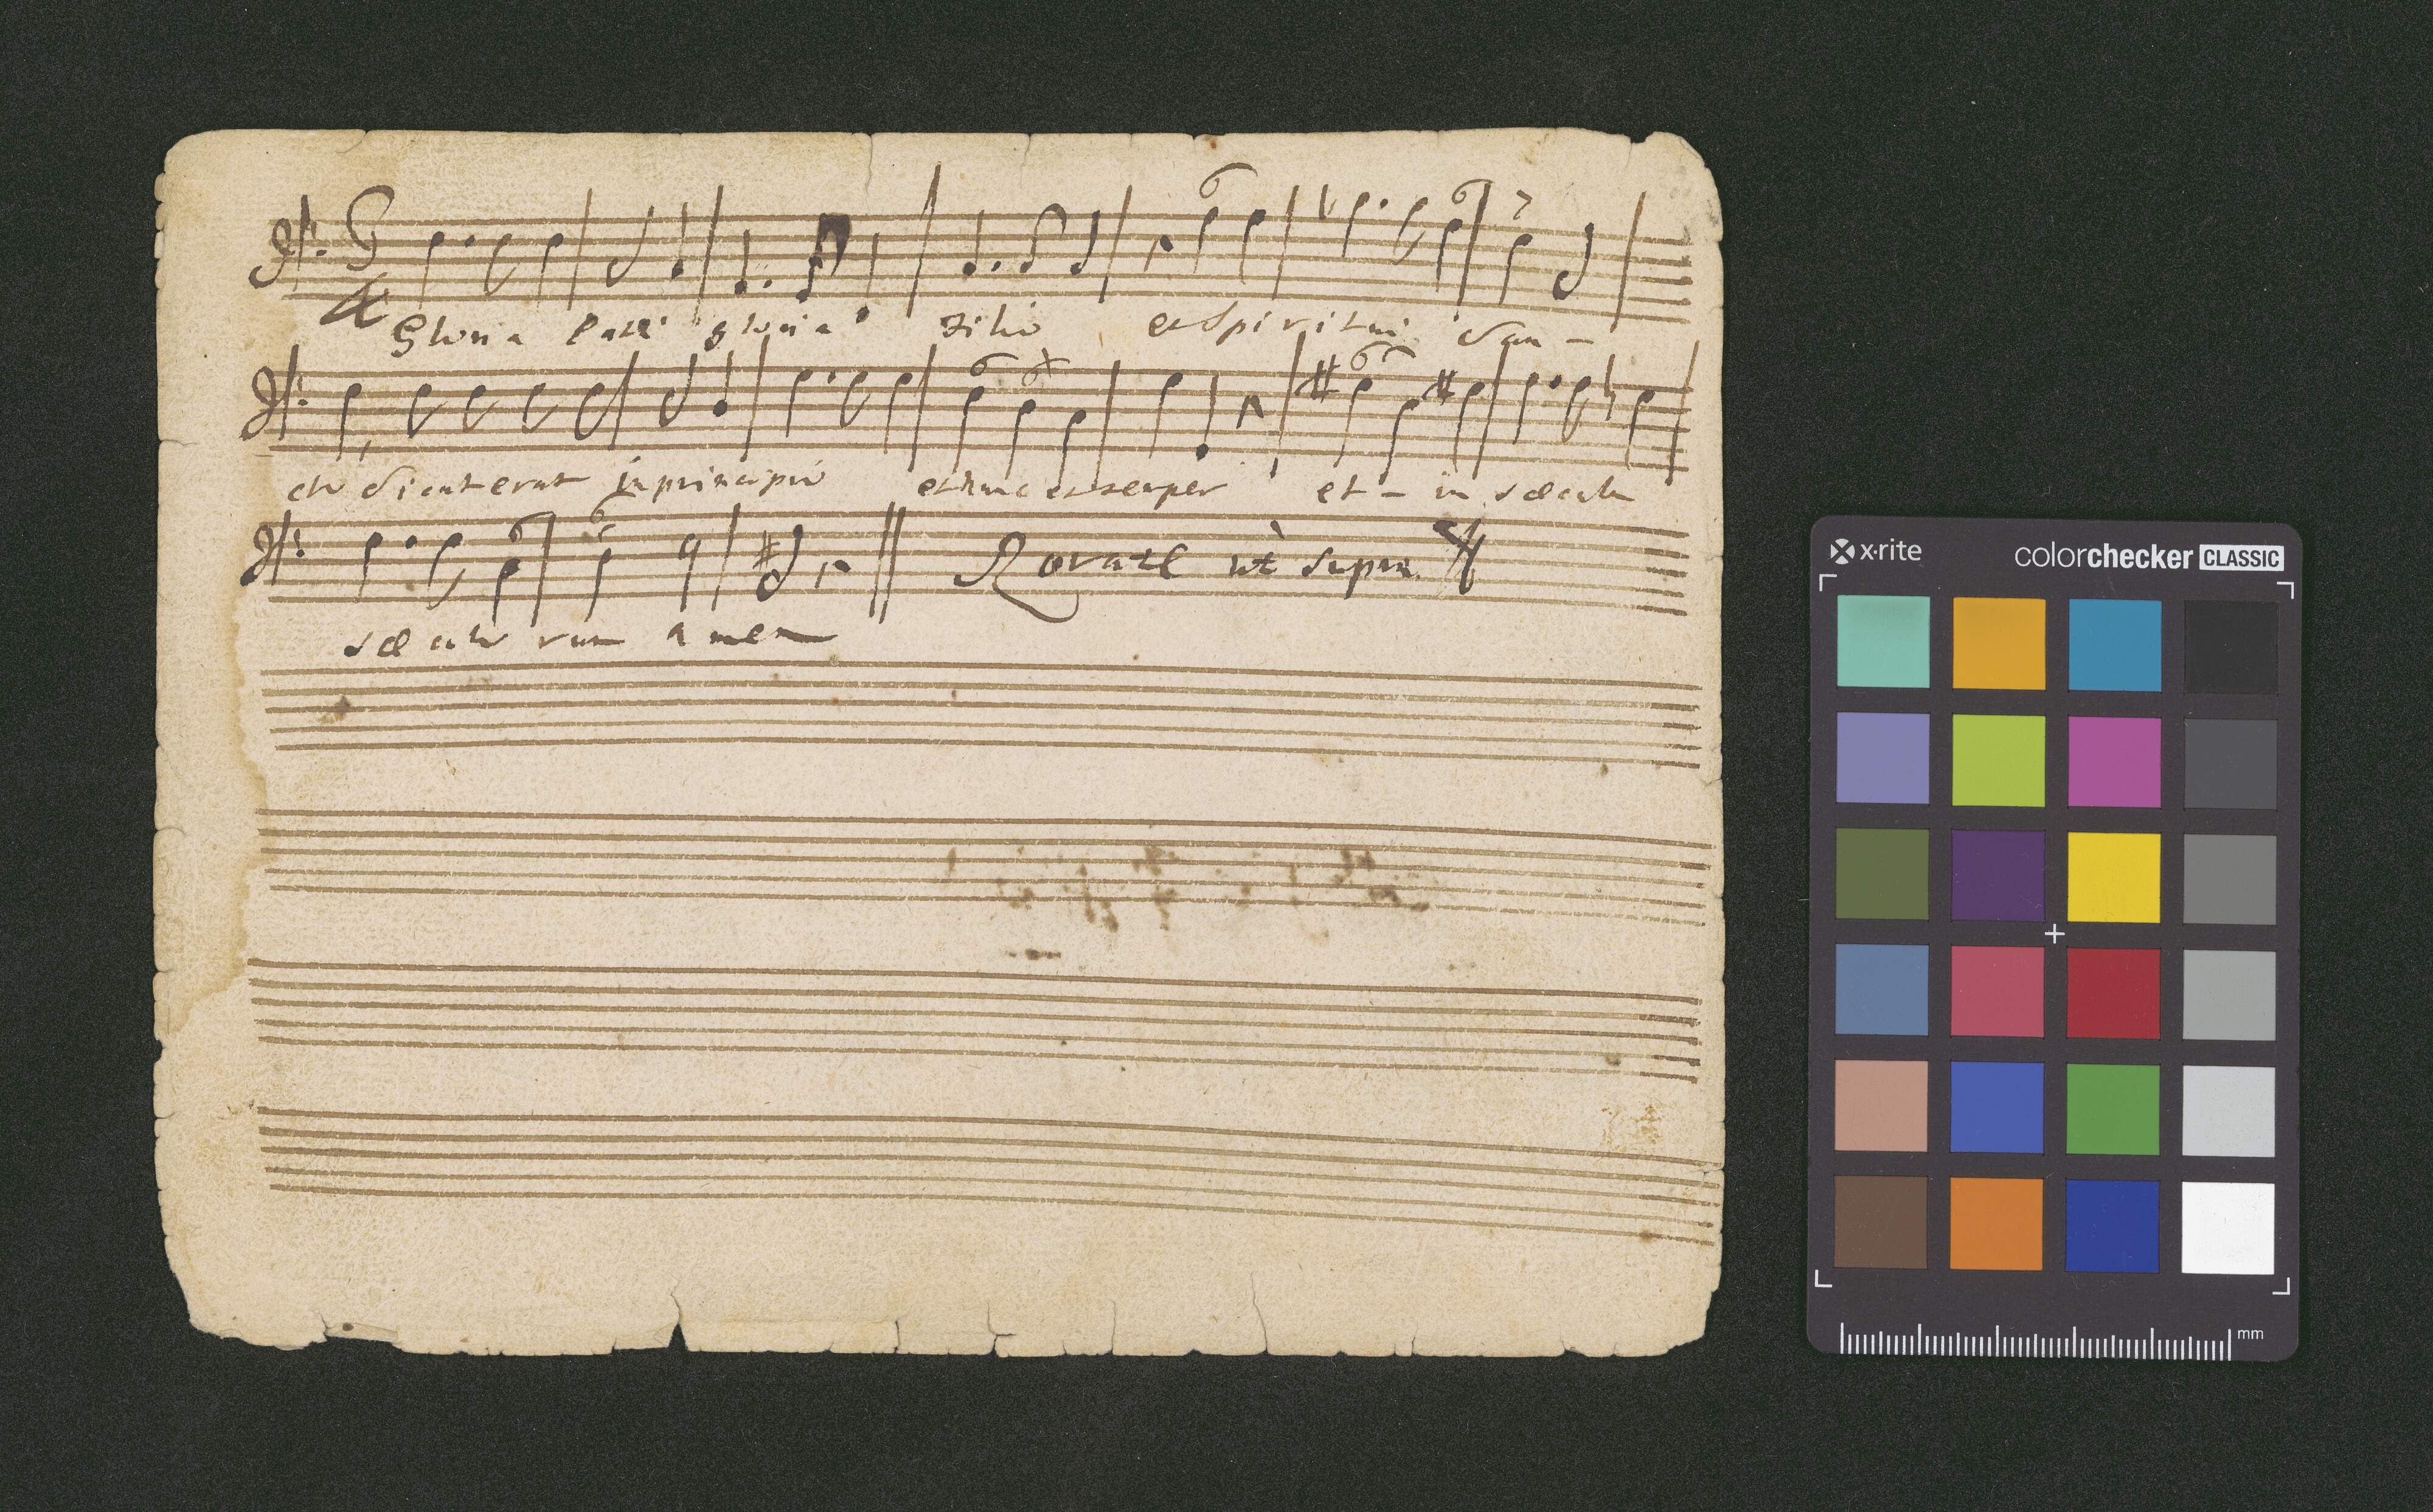 Gloria Patri gloria Filio et Spiritui San-
cto sicut erat in principio et nunc et semper et - in sæcula
Rorate ut supra
sæculorum amen
x-rite colorchecker CLASSIC
mm